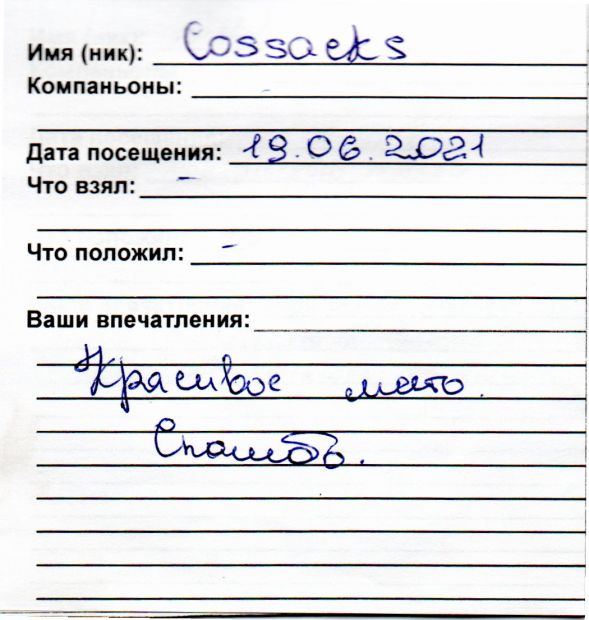 Имя (ник): Cossacks
Компаньоны: -
Дата посещения: 19.06.2021
Что взял: -
Что положил: -
Ваши впечатления:
Красивое место.
Спасибо.